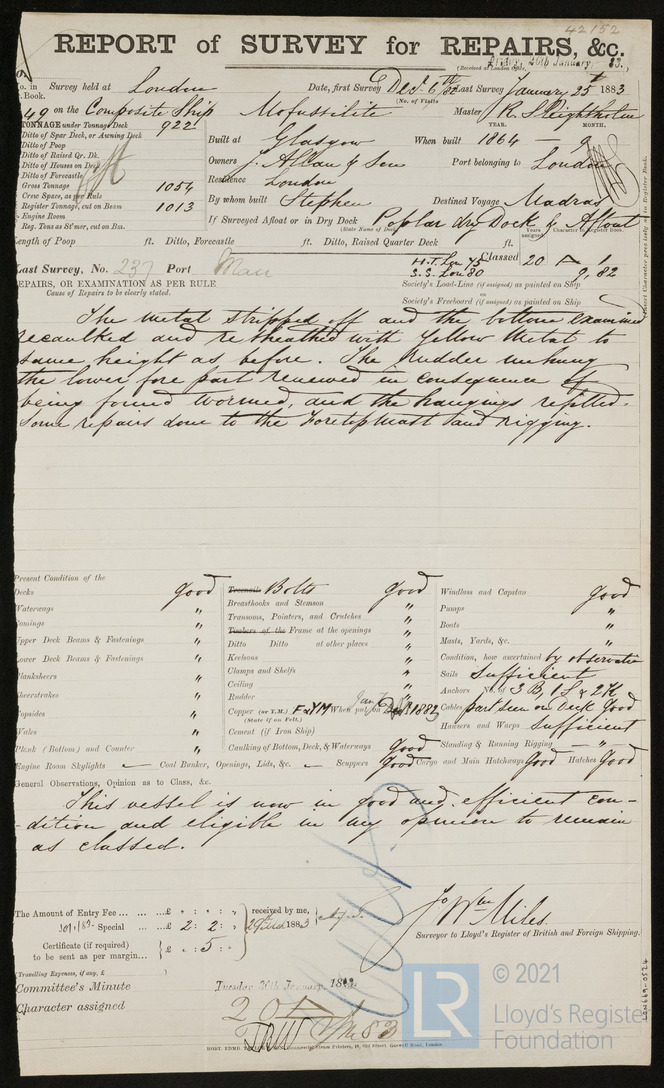 42152
REPORT of SURVEY for REPAIRS, &c.
(Received at London Office, Friday, 26th January, 83.)
No. in Survey held at London Date, first Survey Decr. 6th 82 Last Survey January 25th 1883
Book. (No. of Visits
49 on the Composite Ship Mofussilite Master R. Sleightholm
TONNAGE under Tonnage Deck 922 YEAR. MONTH.
Ditto of Spar Deck, or Awning Deck
Ditto of Poop Built at Glasgow When built 1864 — 9
Ditto of Raised Qr. Dk.
Ditto of Houses on Deck Owners J. Allan & Son Port belonging to London
Ditto of Forecastle
Gross Tonnage 1054 Residence London
Crew Space, as per Rule
Register Tonnage, cut on Beam 1013 By whom built Stephen Destined Voyage Madras
Engine Room
Reg. Tons as St'mer, cut on Bm. If Surveyed Afloat or in Dry Dock Poplar dry Dock & Afloat
(State Name of Dock) Years assigned Character in Register Book.
Length of Poop ft. Ditto, Forecastle ft. Ditto, Raised Quarter Deck ft.
Last Survey, No. 237 Port H.T. Lon 75 Classed 20 A 1
S.S. Lon 80 9,82
REPAIRS, OR EXAMINATION AS PER RULE Society's Load-Line (if assigned) as painted on Ship
Cause of Repairs to be clearly stated. or
Society's Freeboard (if assigned) as painted on Ship
The metal stripped off and the bottom examined
recaulked and resheathed with Yellow Metal to
same height as before. The rudder unhung
the lower fore part renewed in consequence of
being found wormed, and the hangings refitted.
Some repairs done to the Foretopmast and rigging.
Present Condition of the
Decks good Treenails Bolts good Windlass and Capstan good
Waterways " Breasthooks and Stemson " Pumps "
Comings " Transoms, Pointers, and Crutches " Boats "
Upper Deck Beams & Fastenings " Timbers of the Frame at the openings " Masts, Yards, &c. "
Lower Deck Beams & Fastenings " Ditto Ditto at other places " Condition, how ascertained by observation
Planksheers " Keelsons " Sails Sufficient
Sheerstrakes " Clamps and Shelfs " Anchors No. of 3 B, 1 S & 2 K
Topsides " Ceiling " Cables part seen on deck Good
Wales " Rudder " Hawsers and Warps sufficient
Plank (Bottom) and Counter " Copper (or Y.M.) F & YM When put on Jany 1883 Standing & Running Rigging — "
(State if on Felt.)
Cement (if Iron Ship)
Caulking of Bottom, Deck, & Waterways Good
Engine Room Skylights — Coal Bunker, Openings, Lids, &c. — Scuppers Good Cargo and Main Hatchways Good Hatches Good
General Observations, Opinion as to Class, &c.
This vessel is now in good and efficient con-
-dition and eligible in my opinion to remain
as classed.
The Amount of Entry Fee ... £ : : received by me,
Special ... £ 2 : 2 : 1883
Certificate (if required) £ : 5 :
to be sent as per margin...
Wm Miles.
Surveyor to Lloyd's Register of British and Foreign Shipping.
(Travelling Expenses, if any, £ )
Committee's Minute Tuesday, 30th January, 188
Character assigned 20 A 1
83
LON669-0526
LR
© 2021
Lloyd's Register
Foundation